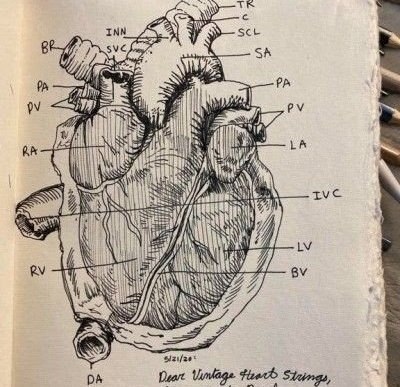 TR
C
INN
SCL
BR
SVC
SA
PA
PA
PV
PV
RA
LA
IVC
LV
RV
BV
5/21/20
DA
Dear Vintage Heart Strings,